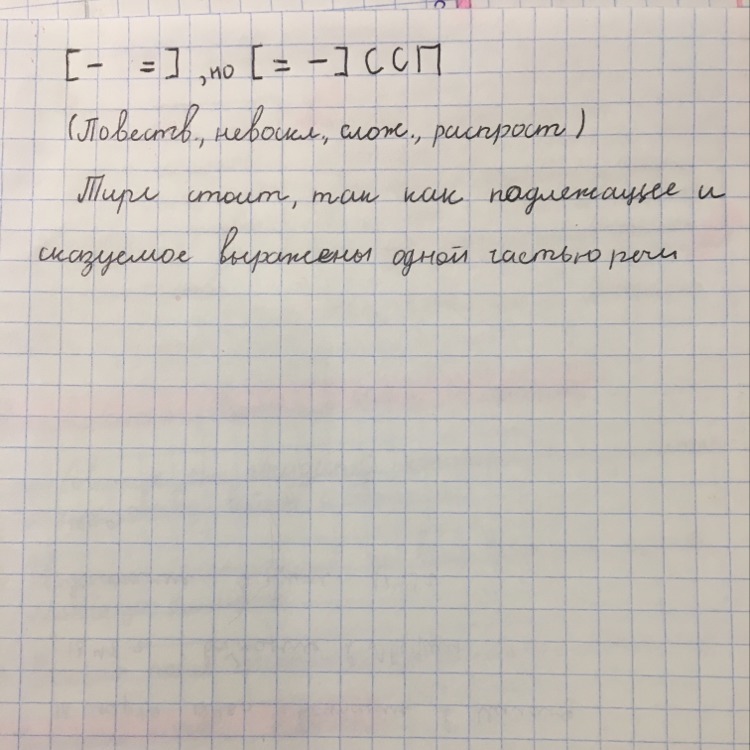 [- =] , но [= -] ССП
(Повеств., невоскл., слож., распрост)
Тире стоит, так как подлежащее и
сказуемое выражены одной частью речи